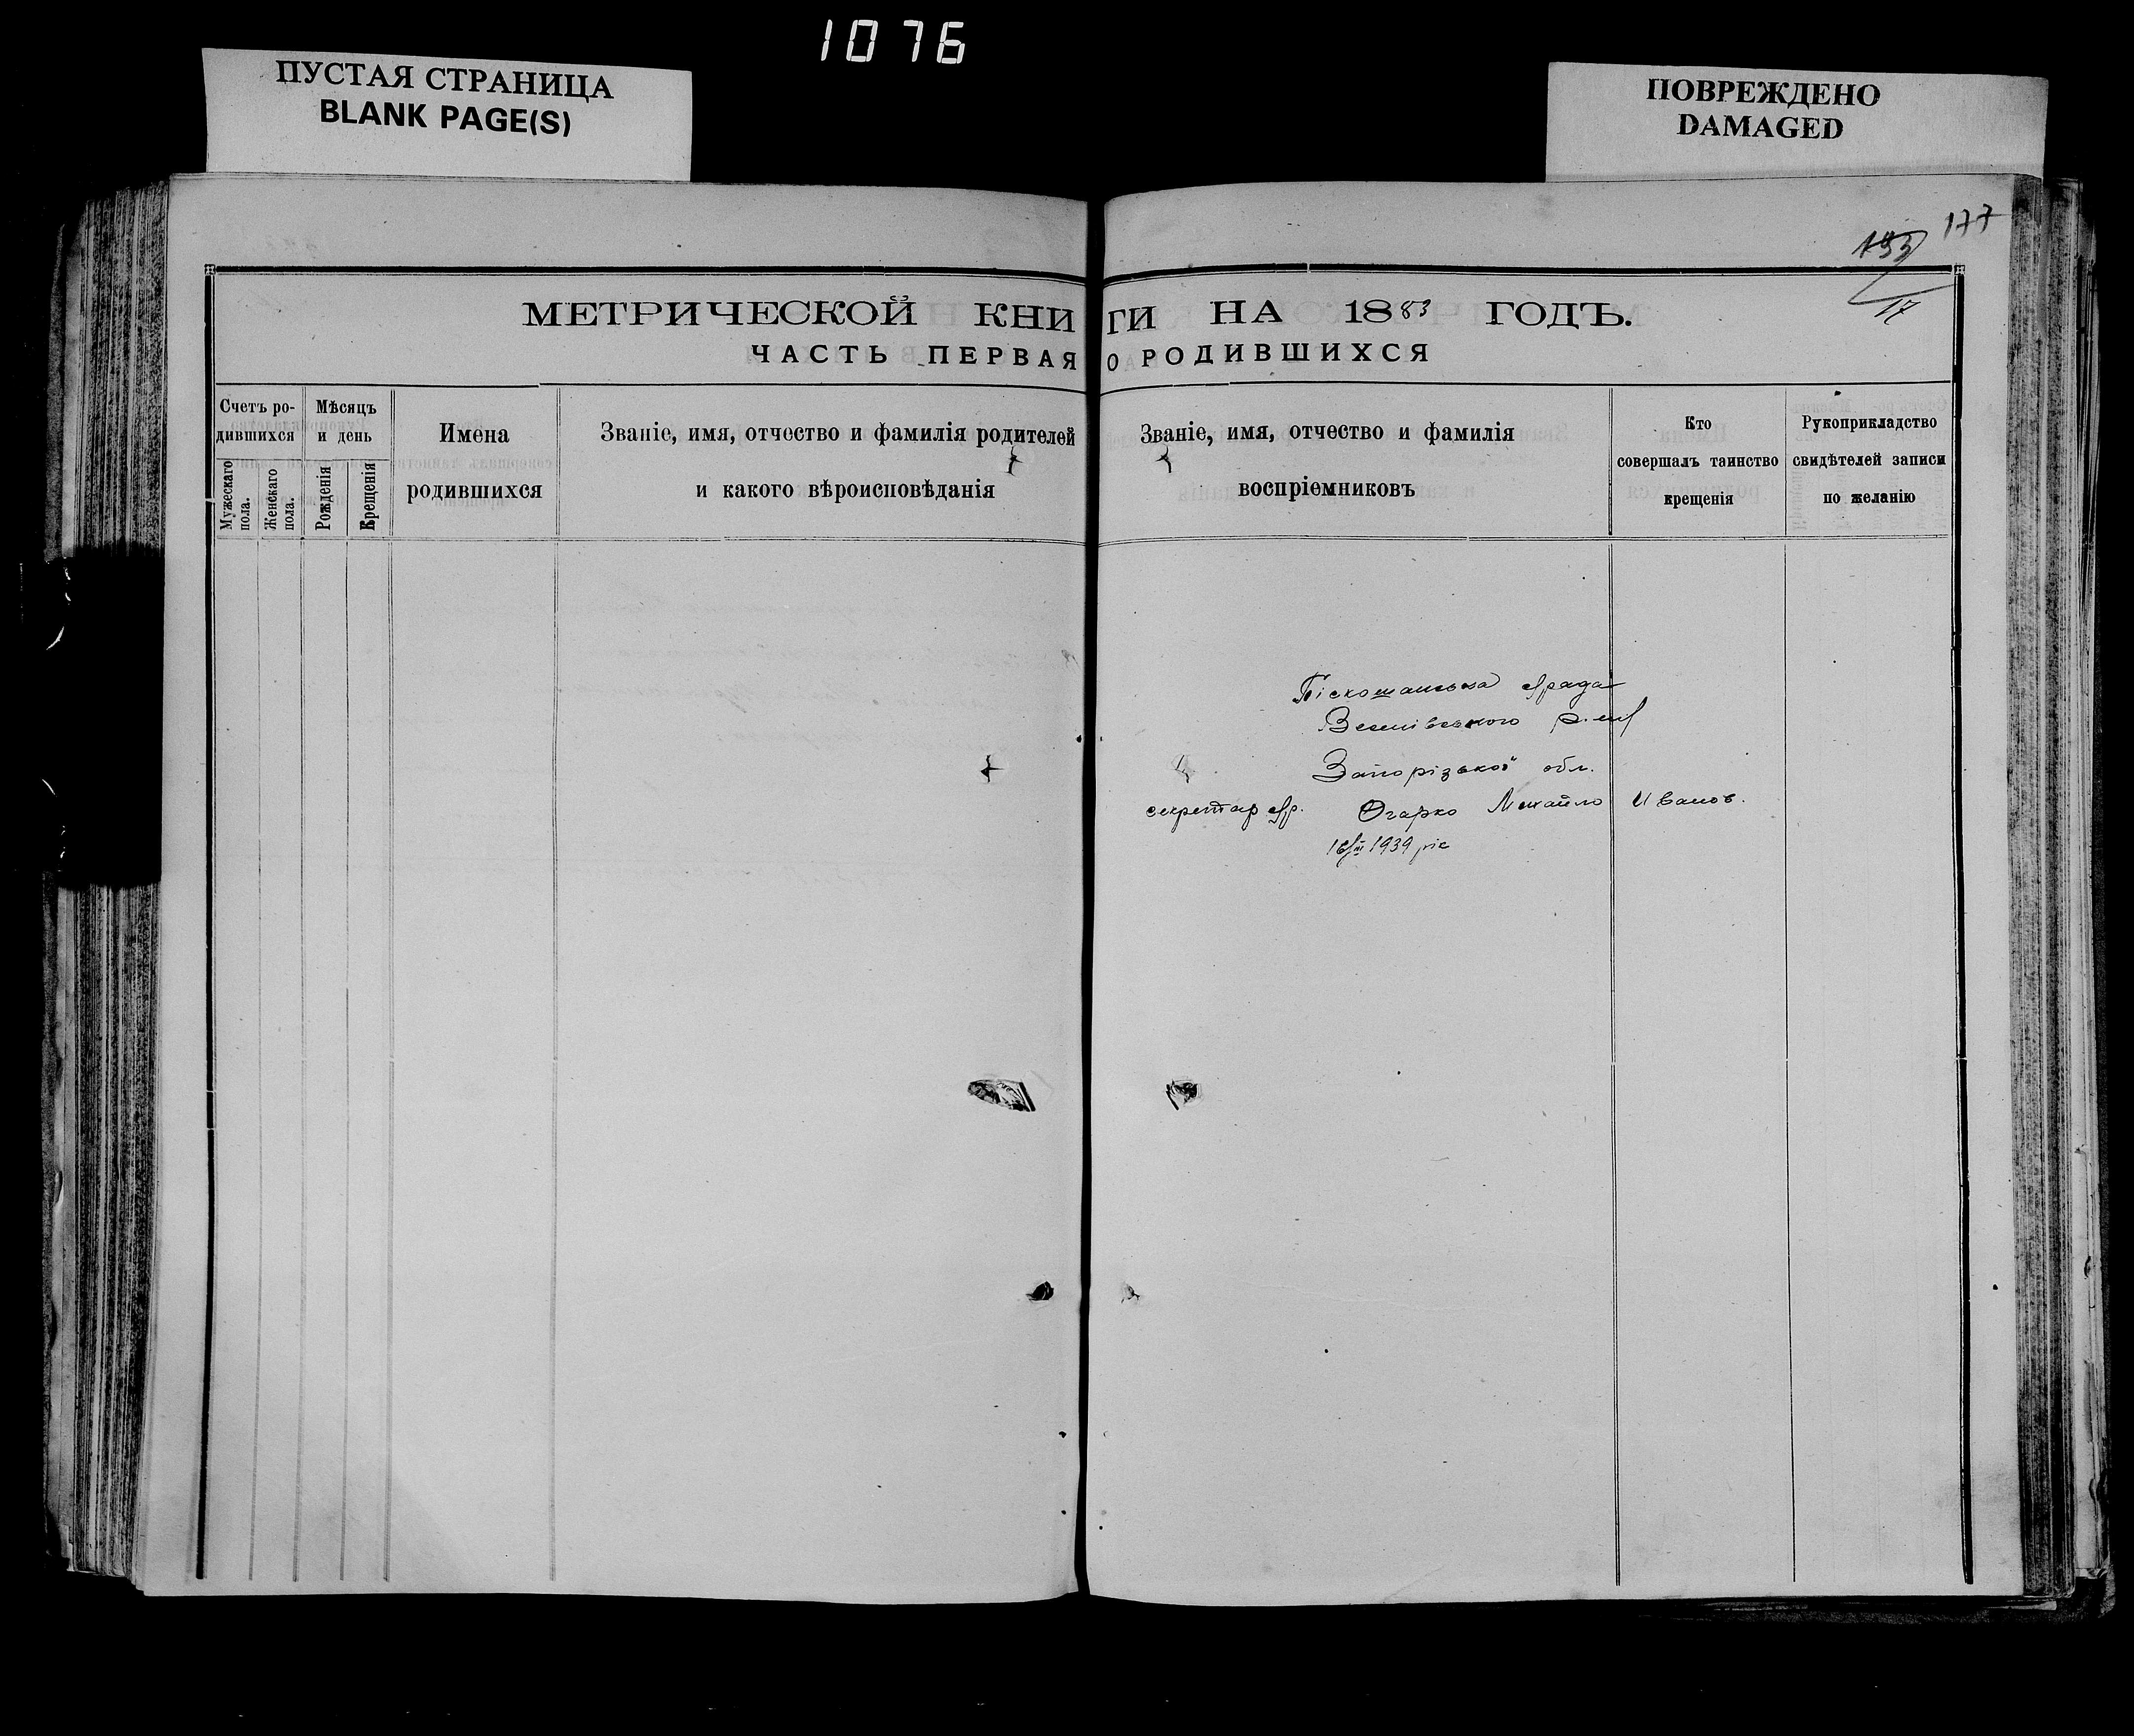 1076
ПУСТАЯ СТРАНИЦА
BLANK PAGE(S)
ПОВРЕЖДЕНО
DAMAGED
177
МЕТРИЧЕСКОЙ КНИГИ НА 1883 ГОДЪ.
ЧАСТЬ ПЕРВАЯ О РОДИВШИХСЯ
Счетъ ро-
дившихся
Мужескаго
пола.
Женскаго
пола.
Мѣсяцъ
и день
Рожденія
Крещенія
Имена
родившихся
Званіе, имя, отчество и фамилія родителей
и какого вѣроисповѣданія
Званіе, имя, отчество и фамилія
воспріемниковъ
Кто
совершалъ таинство
крещенія
Рукоприкладство
свидѣтелей записи
по желанію
Піскошанська
Запорізької обл.
секретар Огарко Михайло Иванов.
1939 рік